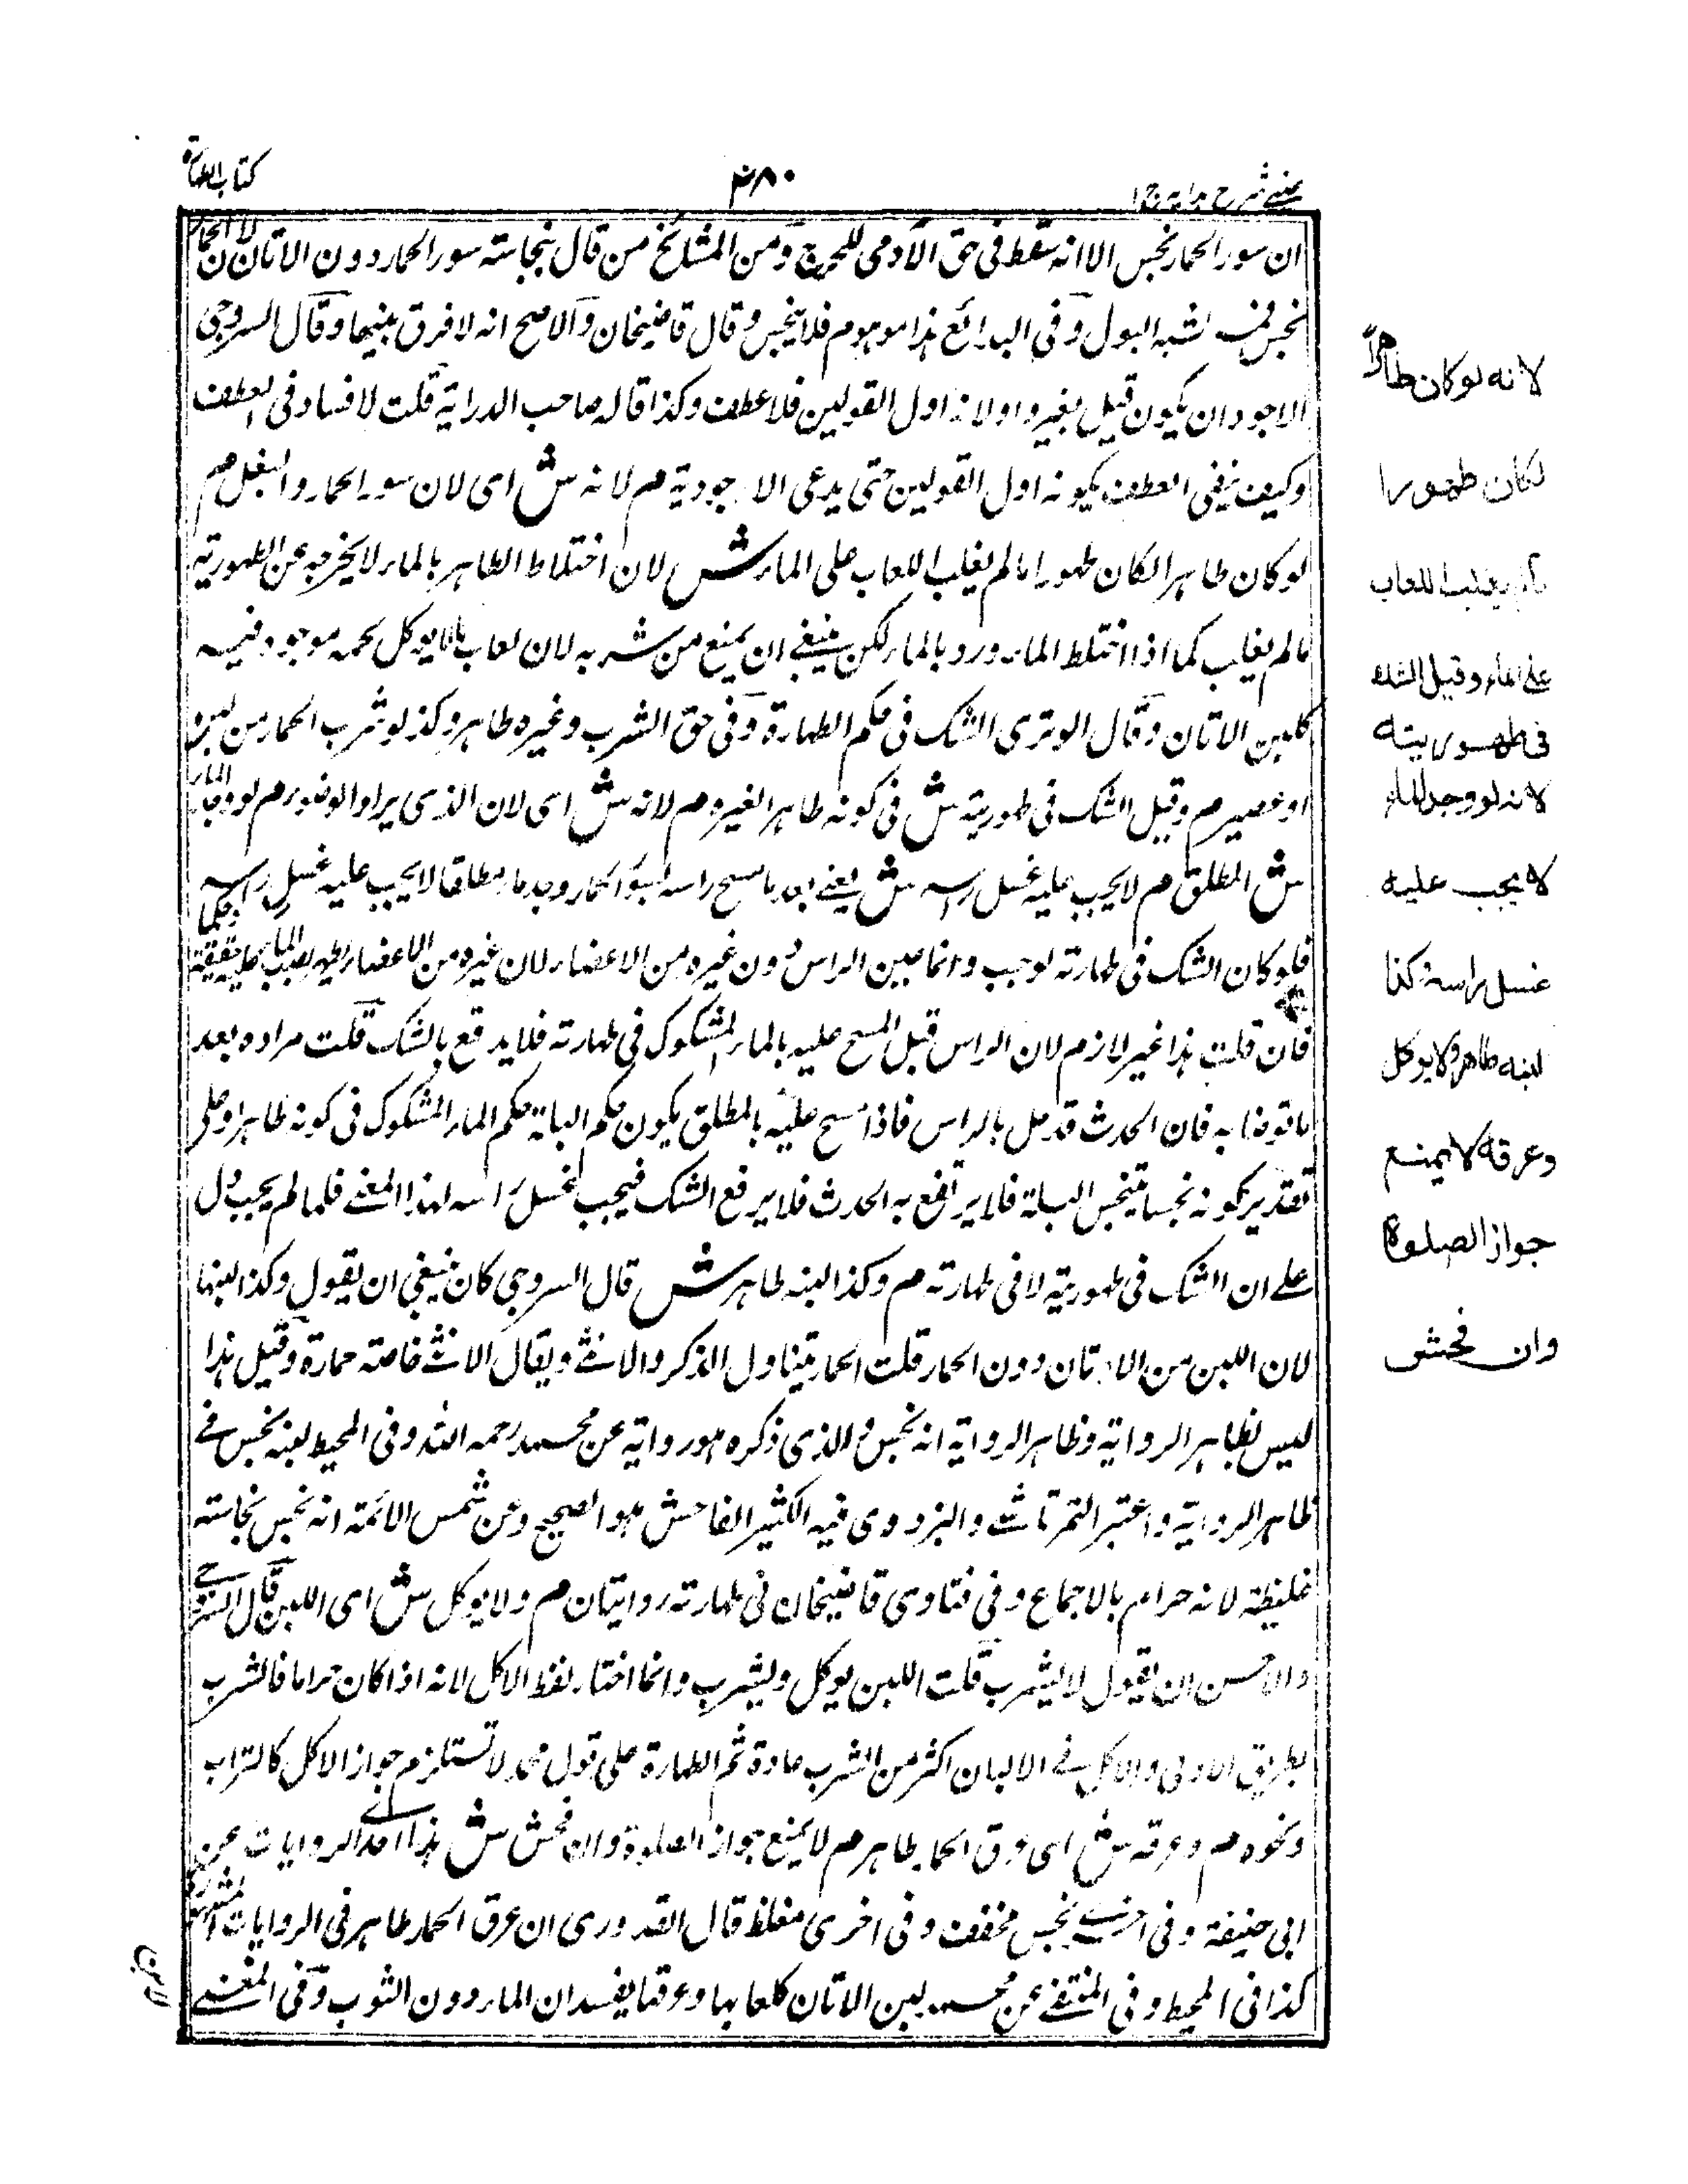 كتاب الطهارة
٤٨٠
عيني شرح هدايه ج ١
ان سور الحمار نجس الا انه سقط فى حق الآدمى للحرج ومن المشائخ من قال بنجاسته سور الحمار دون الاتان لان الحمار
نجس فمه لشبه البول وفى البدائع هذا موهوم فلا ينجس وقال قاضيخان والاصح انه لا فرق بينهما وقال السروجى
الاجود ان يكون قيل بغير واو لانه اول القولين فلا عطف وكذا قاله صاحب الدراية قلت لا فساد فى العطف
وكيف ينفى العطف بكونه اول القولين حتى يدعى الاجودية م لانه ش اى لان سور الحمار والبغل م
لو كان طاهرا لكان طهورا ما لم يغلب اللعاب على الماء ش لان اختلاط الطاهر بالماء لا يخرجه عن الطهورية
ما لم يغلب كما اذا اختلط الماء ورد بالماء لكن ينبغى ان يمنع من شربه لان لعاب ما لا يوكل لحمه موجود فيه
كلبن الاتان وقال الوترى الشك فى حكم الطهارة وفى حق الشرب وغيره طاهر وكذا لو شرب الحمار من لبن
او عصير م وقيل الشك فى طهوريته ش فى كونه طاهرا لغيره م لانه ش اى لان الذى يراد الوضوء م لو وجد الماء
ش المطلق م لا يجب عليه غسل راسه ش يعنى بعد ما مسح راسه بسور الحمار وجد ماء مطلقا لا يجب عليه غسل راسه
فلو كان الشك فى طهارته لوجب وانما عين الراس دون غيره من الاعضاء لان غيره من الاعضاء يطهر بصب الماء عليه حقيقة وحكما
فان قلت هذا غير لازم لان الراس قبل المسح عليه بالماء المشكوك فى طهارته فلا يدفع بالشك قلت مراده بعد
ما توضا به فان الحدث قد حل بالراس فاذا مسح عليه بالمطلق يكون حكم البلة حكم الماء المشكوك فى كونه طاهرا وعلى
تقدير كونه نجسا يتنجس البلة فلا يرتفع به الحدث فلا يرفع الشك فيجب غسل راسه لهذا المعنى فلما لم يجب دل
على ان الشك فى طهوريته لا فى طهارته م وكذا لبنه طاهر ش قال السروجى كان ينبغى ان يقول وكذا لبنها
لان اللبن من الاتان دون الحمار قلت الحمار يتناول الذكر والانثى ويقال الانثى خاصة حمارة وقيل هذا
ليس بظاهر الرواية وظاهر الرواية انه نجس والذى ذكره هو رواية عن محمد رحمه الله وفى المحيط لبنه نجس فى
ظاهر الرواية واعتبر التمرتاشى والبزدوى فيه الكثير الفاحش هو الصحيح وعن شمس الائمة انه نجس نجاسة
غليظة لانه حرام بالاجماع وفى فتاوى قاضيخان فى طهارته روايتان م ولا يوكل ش اى اللبن قال السروجى
والاحسن ان يقول لا يشرب قلت اللبن يوكل ويشرب وانما اختار لفظ الاكل لانه اذا كان حراما فالشرب
بطريق الاولى والاكل فى الالبان اكثر من الشرب عادة ثم الطهارة على قول محمد لا تستلزم جواز الاكل كالتراب
ونحوه م وعرقه ش اى عرق الحمار طاهر م لا يمنع جواز الصلوة وان فحش ش هذا احدى الروايات عن
ابى حنيفة وفى اخرى نجس مخفف وفى اخرى مغلظ قال القدورى ان عرق الحمار طاهر فى الروايات المشهورة
كذا فى المحيط وفى المنتقى عن محمد لبن الاتان كلعابها وعرقها يفسدان الماء دون الثوب وفى المغنى
لانه لو كان طاهرا
لكان طهورا
مالم يغلب اللعاب
على الماء وقيل الشك
فى طهوريته
لانه لو وجد الماء
لا يجب عليه
غسل راسه وكذا
لبنه طاهر ولا يوكل
وعرقه لا يمنع
جواز الصلوة
وان فحش